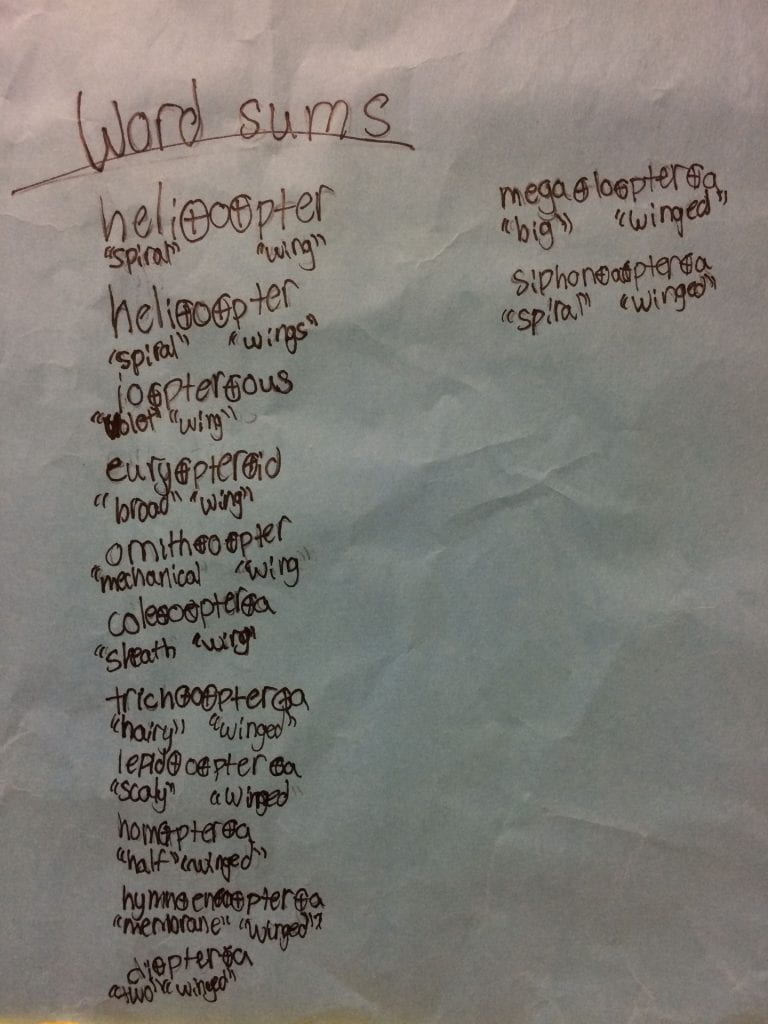 Word sums
heli⊕o⊕pter
"spiral" "wing"
heli⊕o⊕pter
"spiral" "wings"
io⊕pter⊕ous
"wing"
eury⊕pter⊕id
"broad" "wing"
ornith⊕o⊕pter
"mechanical "wing
cole⊕o⊕pter⊕a
"sheath "wing"
trich⊕o⊕pter⊕a
"hairy" "winged"
lepid⊕o⊕pter⊕a
"scaly" "winged
hom⊕pter⊕a
"half" "winged"
"membrane" "winged"
di⊕pter⊕a
"two" "winged"
mega⊕lo⊕pter⊕a
"big" "winged"
siphon⊕a⊕pter⊕a
"spiral" "winged"